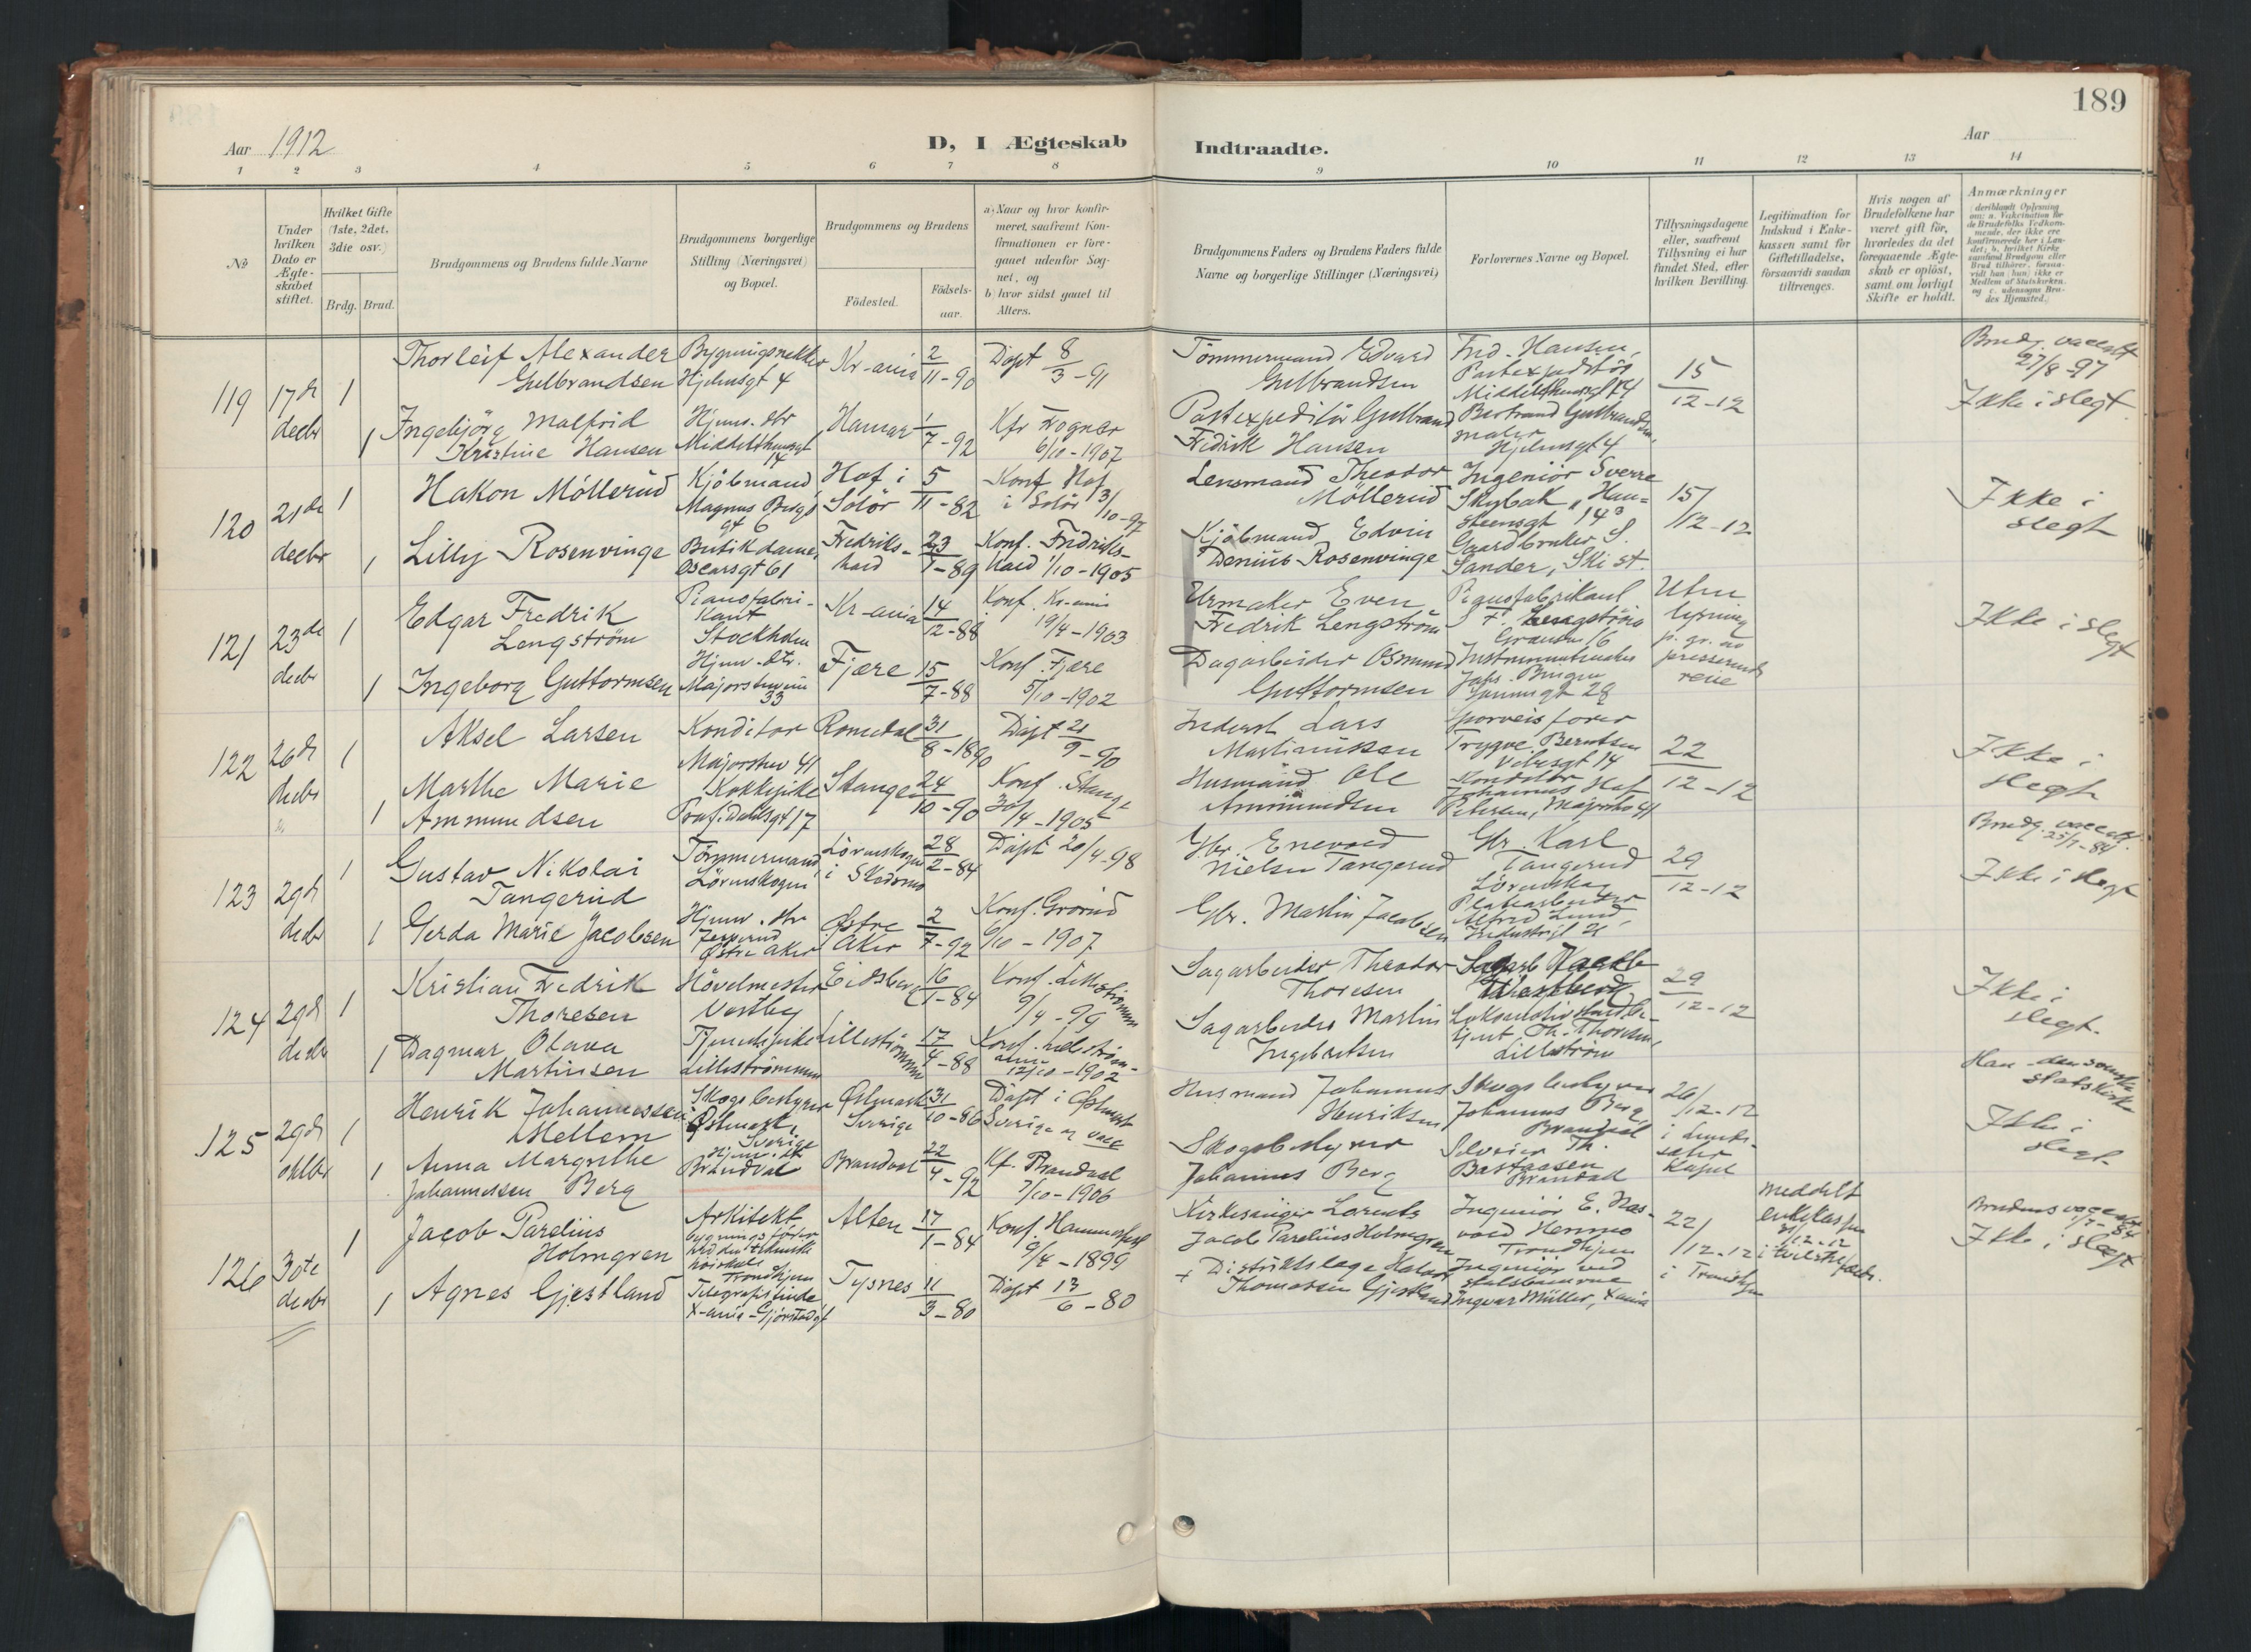 189
Aar 1912
D, I Ægteskab Indtraadte.
Aar
1 2 3 4 5 6 7 8 9 10 11 12 13 14
No
Under hvilken Dato er Ægteskabet stiftet.
Hvilket Gifte (1ste, 2det, 3die osv.)
Brdg. Brud.
Brudgommens og Brudens fulde Navne
Brudgommens borgerlige Stilling (Næringsvei) og Bopæl.
Brudgommens og Brudens
Födested.
Födsels-aar.
a) Naar og hvor konfirmeret, saafremt Konfirmationen er foregaaet udenfor Sognet, og
b) hvor sidst gaaet til Alters.
Brudgommens Faders og Brudens Faders fulde Navne og borgerlige Stillinger (Næringsvei)
Forlovernes Navne og Bopæl.
Tillysningsdagene eller, saafremt Tillysning ei har fundet Sted, efter hvilken Bevilling.
Legitimation for Indskud i Enkekassen samt for Giftetilladelse, forsaavidt saadan tiltrænges.
Hvis nogen af Brudefolkene har været gift för, hvorledes da det foregaaende Ægteskab er oplöst, samt om lovligt Skifte er holdt.
Anmærkninger
119 17de decbr 1
Thorleif Alexander Gulbrandsen
Hjelmsgt 4
Kr-ania 2/11-90
Döpt 8/3-91
Tömmermand Edvard Gulbrandsen
Fred. Hansen, Postexpeditör, Middelthunsgt 14
15/12-12
Brudg. vaccet 27/8-97
Ikke i slegt
1 Ingebjörg Malfrid Kristine Hansen
Hjem. dtr Middelthunsgt 14
Hamar 1/7-92
Kfr Frogner 6/10-1907
Postexpeditör Gulbrand Fredrik Hansen
Hjelmsgt 4
120 21de decbr 1
Hakon Möllerud
Kjöbmand, Magnus Bergs gt 6
Hof i Solör 5/11-82
Konf Hof i Solör 3/10-97
Lensmand Theodor Möllerud
Ingeniör Sverre
15/12-12
Ikke i slegt
1 Lilly Rosenvinge
Butikdame, Oscarsgt 61
Fredrikshald 23/7-89
Konf. Fredrikshald 1/10-1905
Kjöbmand Edvin Denius Rosenvinge
Gaardbruker S. Sander, Ski st.
121 23de decbr 1
Edgar Fredrik Lengström
Pianofabrikant Stockholm
Kr-ania 14/12-88
Konf. Kr-ania 19/4-1903
Urmaker Even Fredrik Lengström
Pianofabrikant F. Lengström
Uten lysning p. gr. av presserende reise
Ikke i slegt
1 Ingeborg Guttormsen
Hjem. dtr. Majorstuveien 33
Fjære 15/7-88
Konf. Fjære 5/10-1902
Dagarbeider Osmund Guttormsen
122 26de decbr 1
Aksel Larsen
Konditor Majorstuv 41
Romedal 31/8-1890
Döpt 21/9-90
Inderst Lars Martinussen
Sporveisförer Trygve Berntsen Vibesgt 14
22/12-12
Ikke i slegt
1 Marthe Marie Ammundsen
Kokkepike Prof. Dahlsgt 17
Stange 24/10-90
Konf. Stange 30/4-1905
Husmand Ole Ammundsen
123 29de decbr 1
Gustav Nikolai Tangerud
Tömmermand, Lörenskogen
Lörenskogen i Skedsmo 28/2-84
Döpt 20/4-98
Gbr. Enevold Nielsen Tangerud
Gbr. Karl Tangerud Lörenskog
29/12-12
Brudg. vaccet. 25/7-84
Ikke i slegt
1 Gerda Marie Jacobsen
Östre Aker
Østre Aker 2/7-92
Konf. Grorud 6/10-1907
Gbr. Martin Jacobsen
Alfred Lund,
124 29de decbr 1
Kristian Fredrik Thoresen
Hövelmester Vestby
Eidsberg 16/1-84
Konf. Lillestrømmen 9/4-99
Sagarbeider Theodor Thoresen
29/12-12
Ikke i slegt.
1 Dagmar Olava Martinsen
Tjenestepike Lillestrømmen
Lillestrømmen 17/4-88
12/10-1902
Sagarbeider Martin Ingebretsen
Th. Thoresen, Lillestrøm
125 29de 1
Henrik Johannessen Mellem
Skogsbestyrer Østmark, Sverige
Østmark Sverige 31/10-86
Döpt i Østmark Sverige
Husmand Johannes Henriksen
Skogsbestyrer Johannes Berg Brandval
26/12-12
Han den svenske statskirke
Ikke i slegt
1 Anna Margrethe Johannessen Berg
Brandval
Brandval 22/4-92
Kf. Brandval 7/10-1906
Skogsbestyrer Johannes Berg
Bastaasen Brandval
126 30te decbr 1
Jacob Parelius Holmgren
Arkitekt bygningsförer ved den tekniske höiskole Trondhjem
Alten 17/1-84
Konf. Hammerfest 9/4-1899
Kirkesanger Lorents Jacob Parelius Holmgren
Trondhjem
22/12-12 i Trondhjem
meddelt
Brudens
Ikke i slegt
1 Agnes Gjestland
Telegrafistinde
Tysnes 11/3-80
Döpt 13/6-80
+ Distriktslæge Thomassen Gjestland
Ingeniör ved statsbanerne Ingvar Müller, X ania